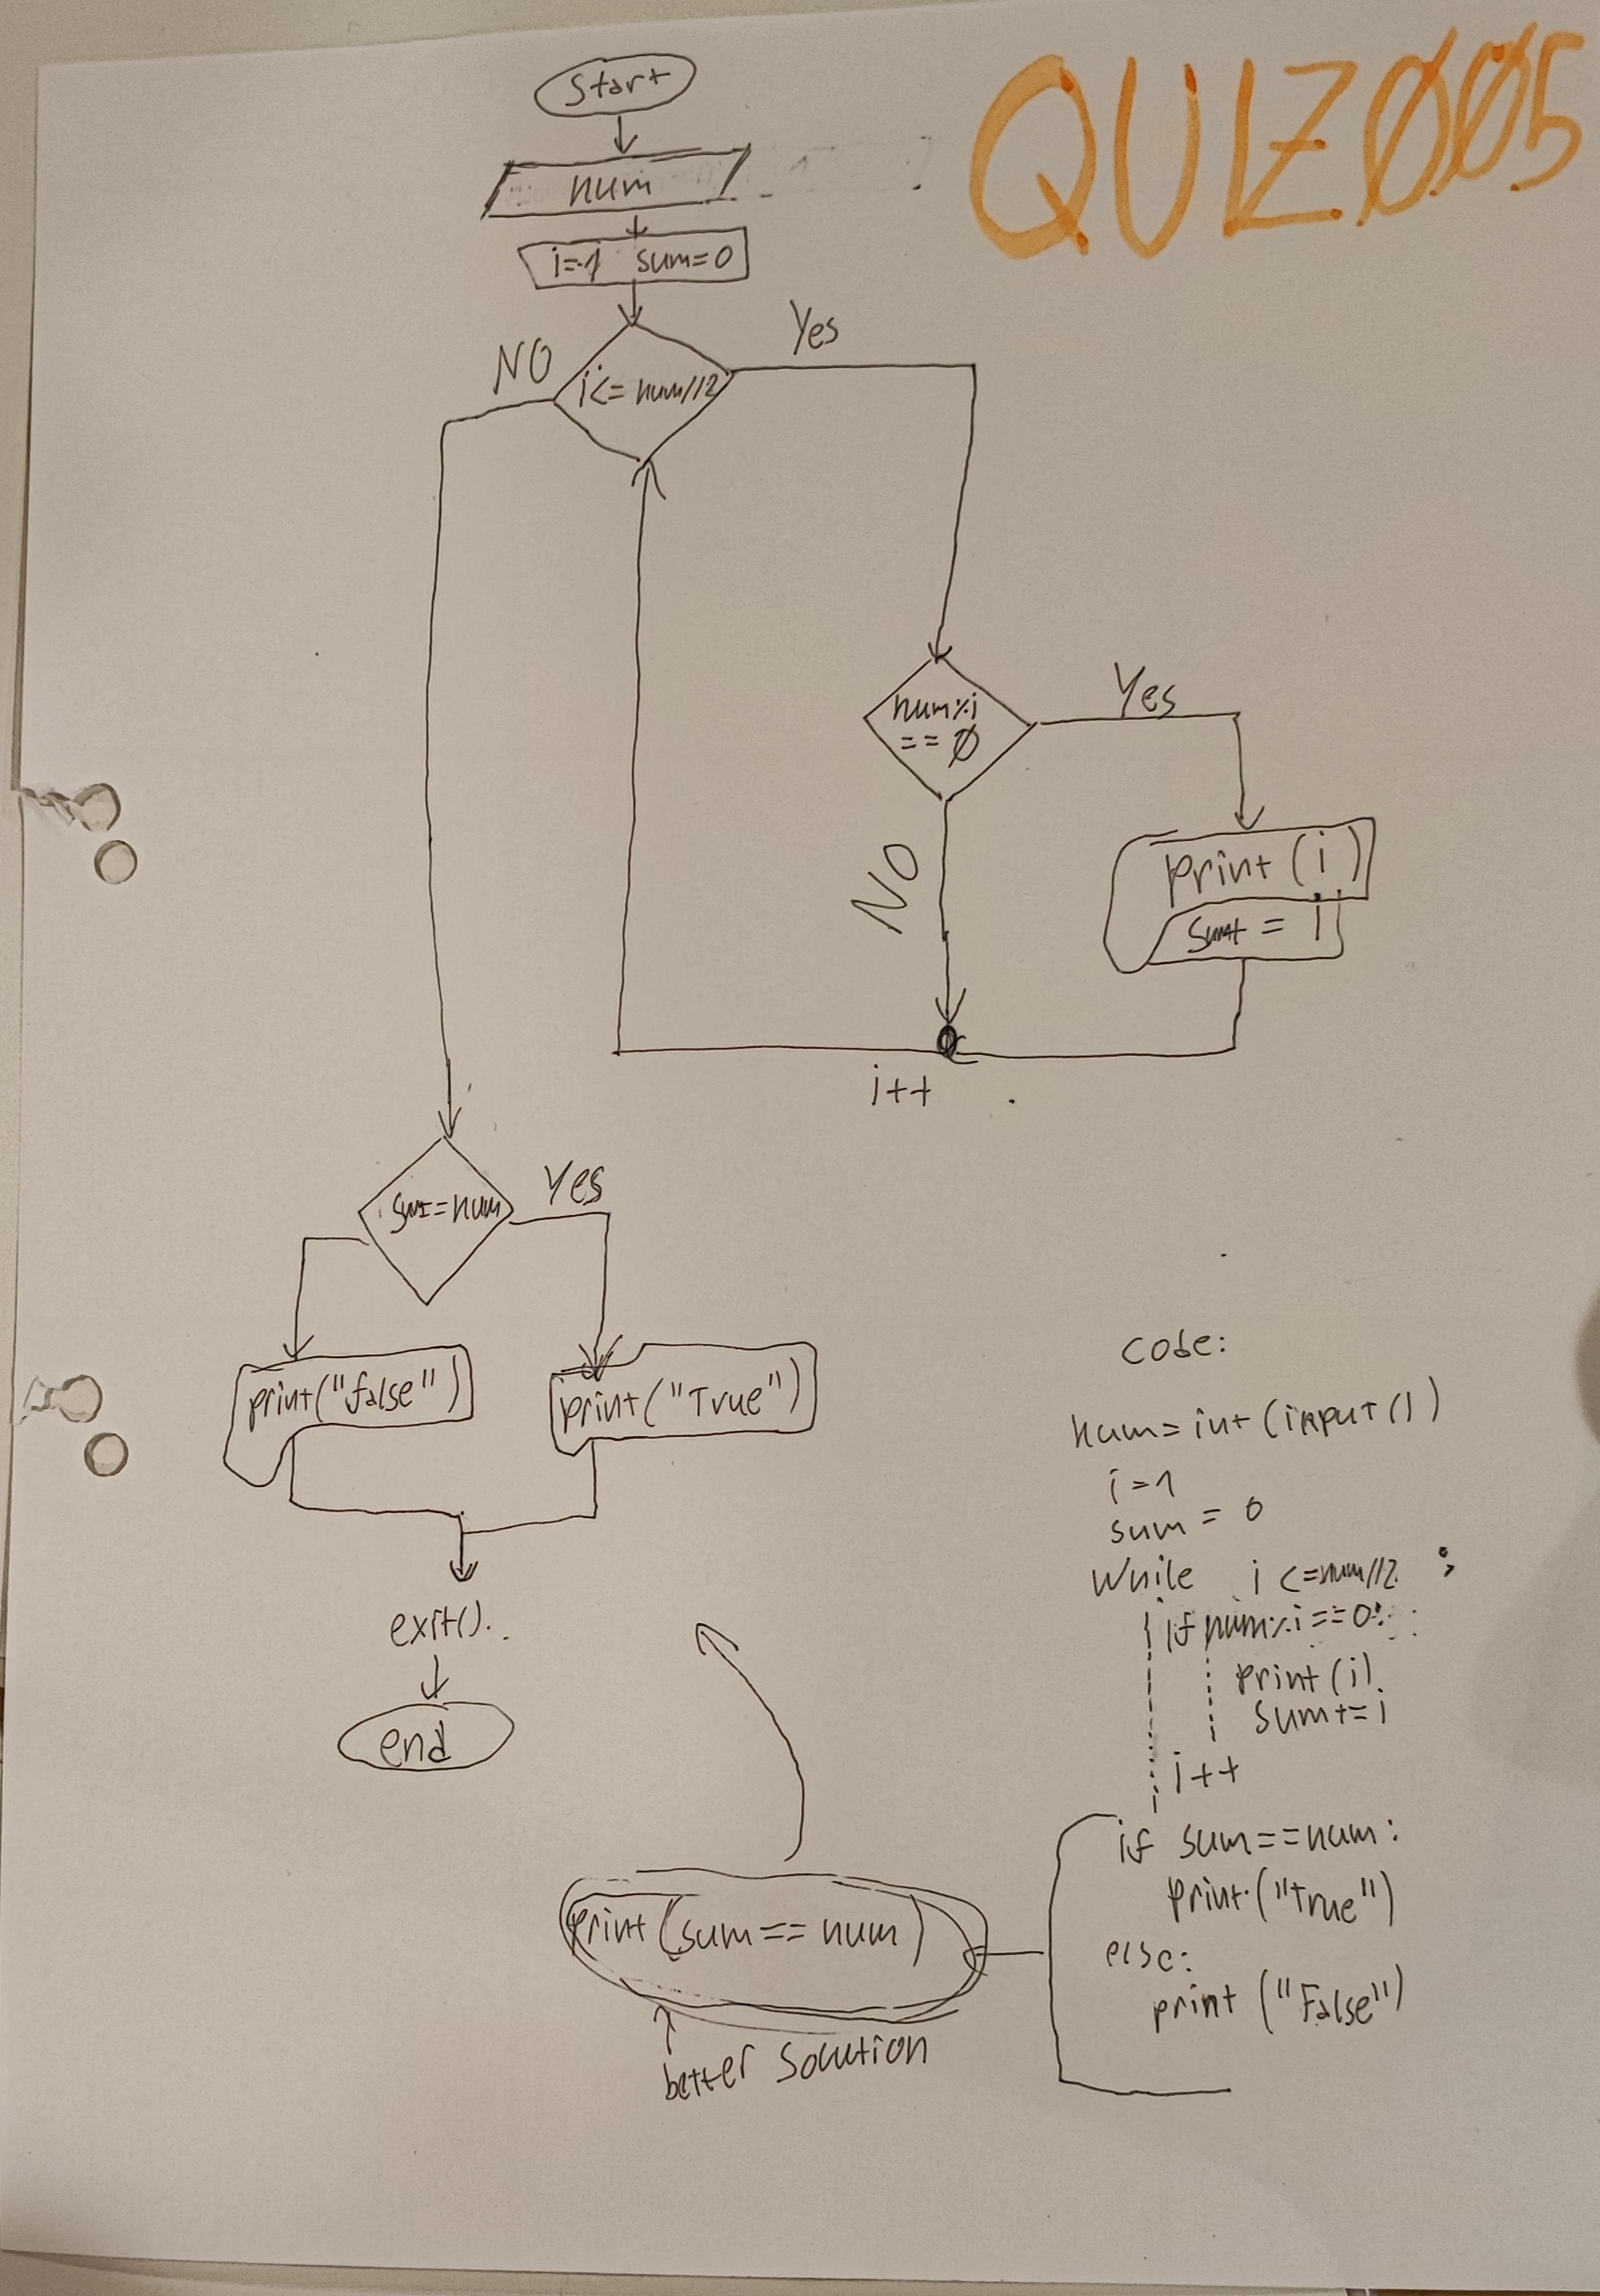 QUIZ005
Start
num
i=1 sum=0
NO
Yes
i<= num//2
num%i
==0
Yes
NO
print(i)
sum+ = i
i++
sum=num
Yes
print("false")
print("True")
exit().
end
code:
num=int(input())
i=1
sum = 0
while i <=num//2 :
if num%i==0:
print(i)
sum+=i
i++
if sum==num:
print("True")
else:
print("False")
print(sum==num)
better solution